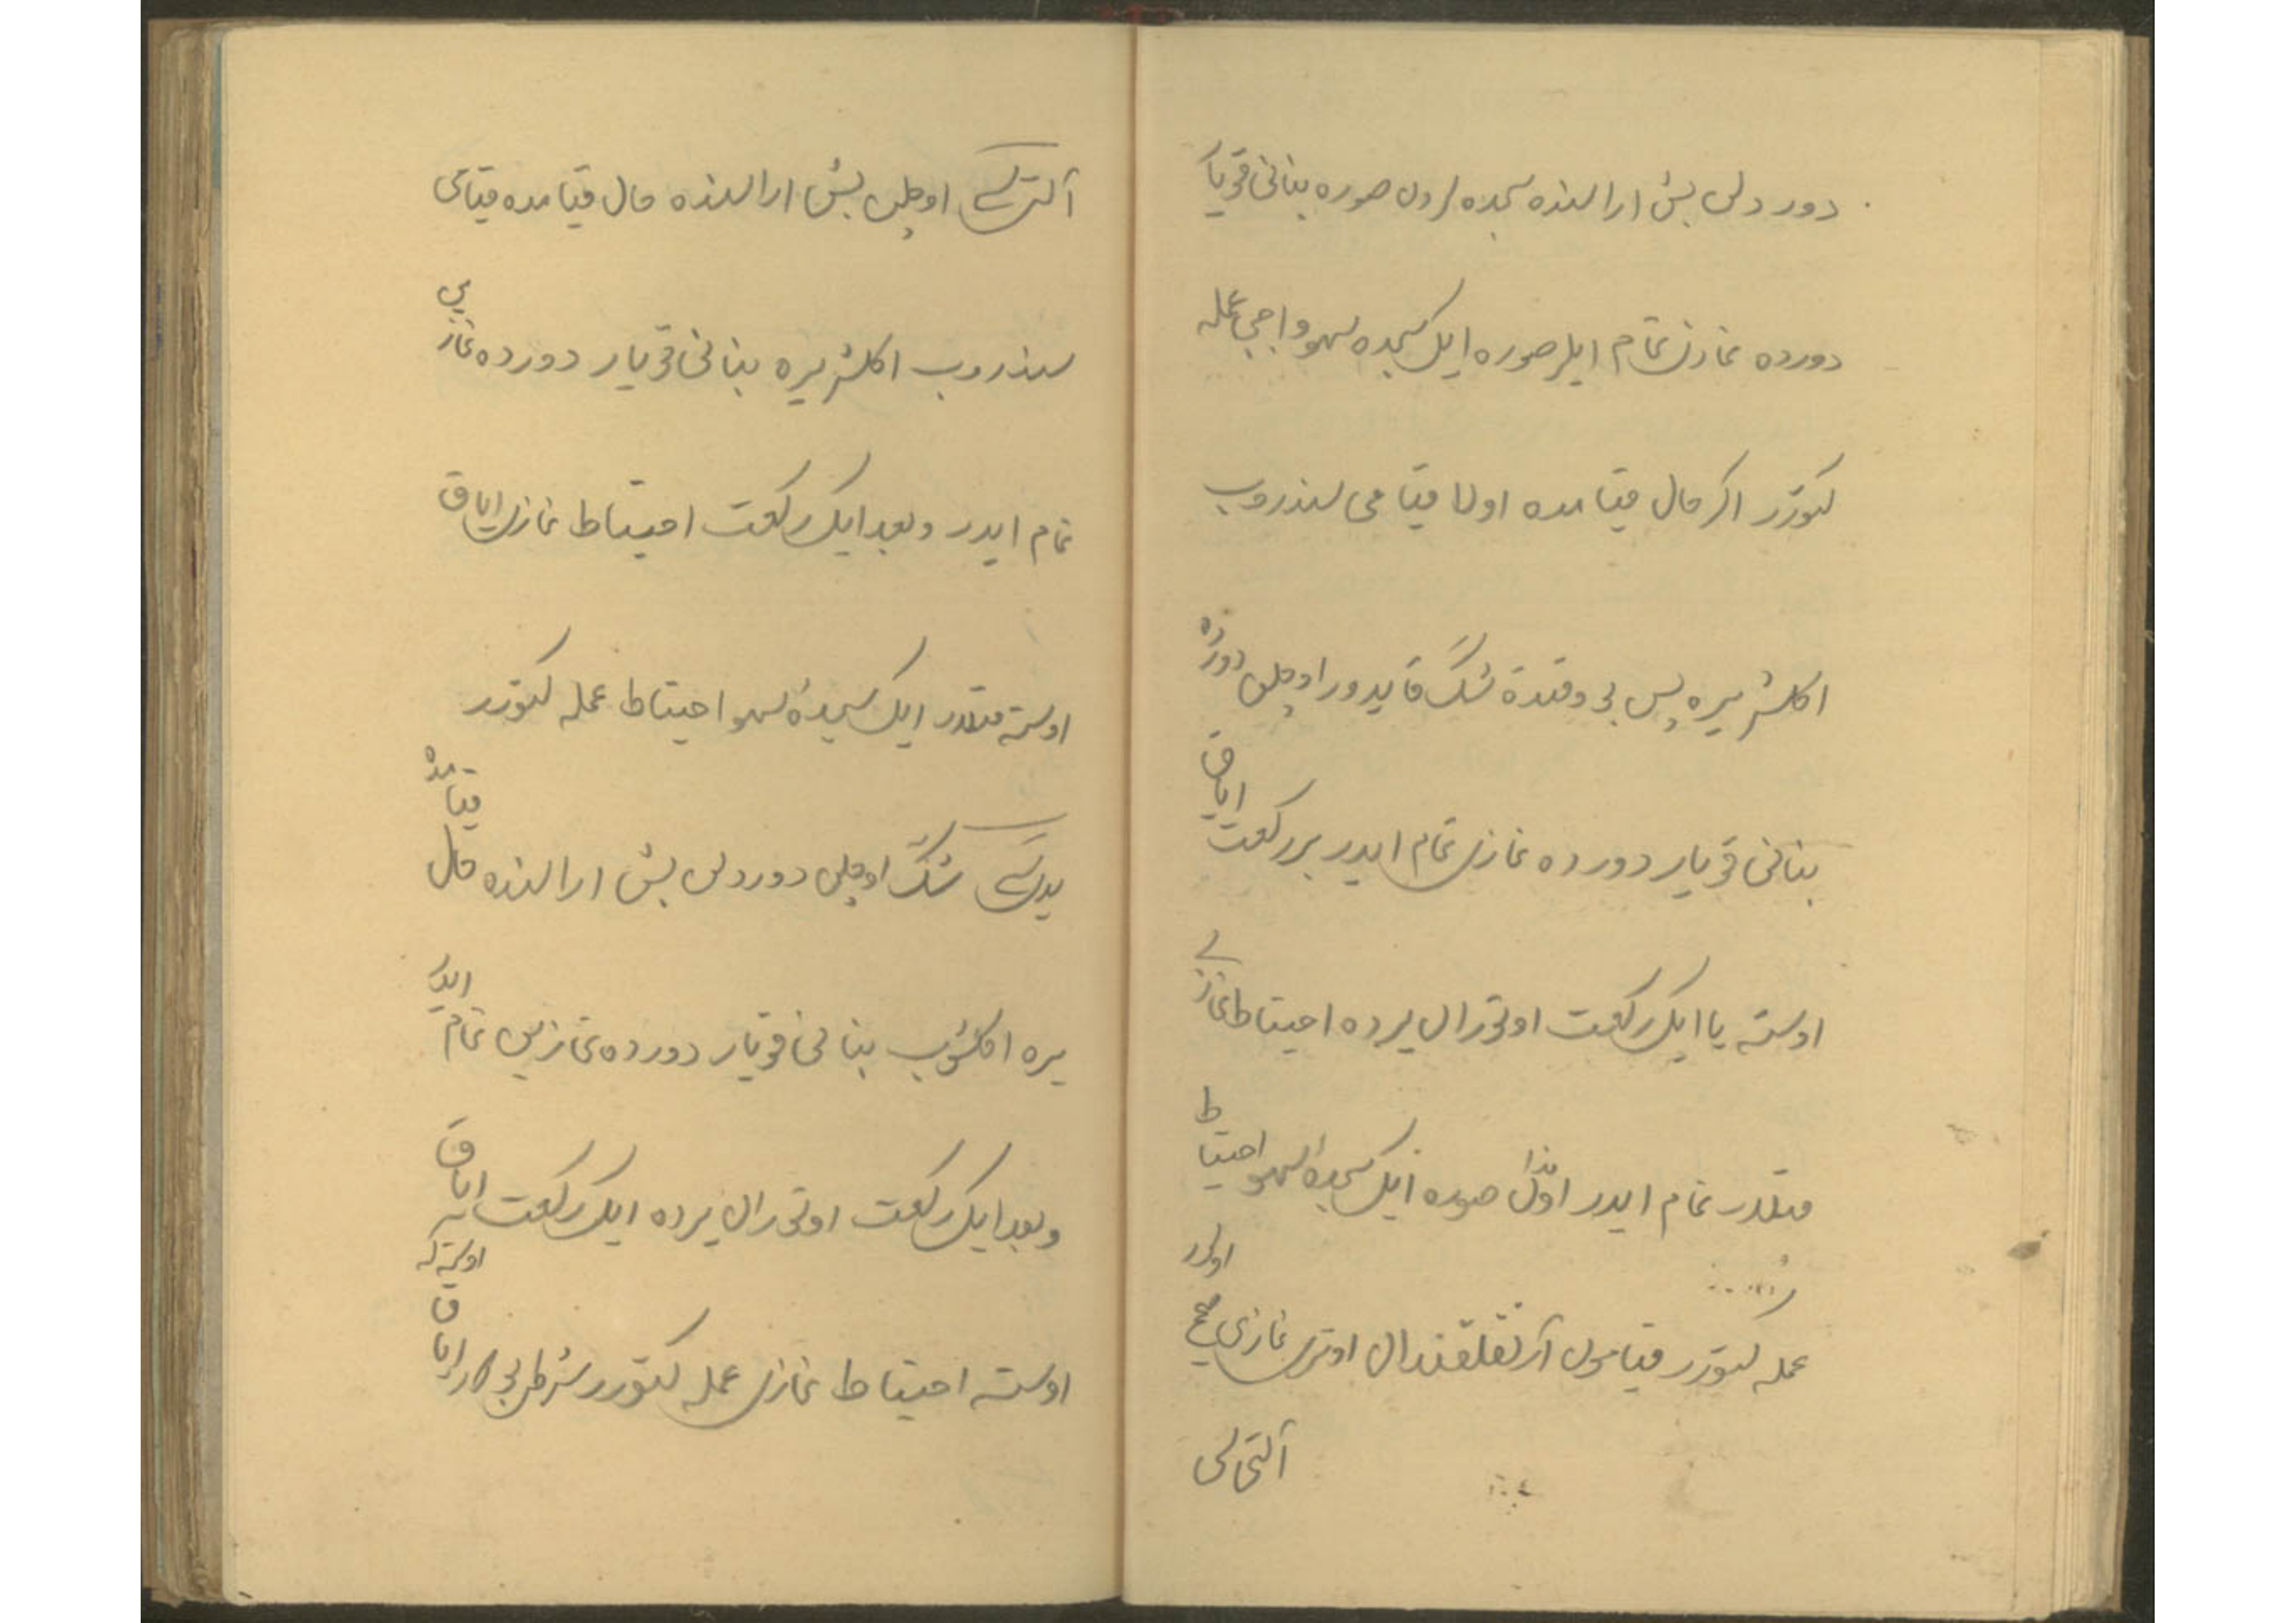 دورد لن بش ارالنده سجده لردن صوره بنانی قویار
دورده نمازن تمام ایلر صوره ایکی سجده سهو واجبی عمله
کتورر اکر حال قیامده اولا قیامی سندروب
اکلشر یره پس بو وقتده شک قایدور اوچلن دورده
بنانی قویار دورده نمازی تمام ایدر بر رکعت ایاق
اوسته یا ایکی رکعت اوتورال یرده احتیاط نمازی
قتلدر تمام ایدر اوندان صوره ایکی سجده سهو احتیاط
عمله کتورر نمازی صحیح اولور
آلتی لی
آلتی اوچلن بش ارالنده حال قیامده قیامی
سندروب اکلشر یره بنانی قویار دورده نمازی
تمام ایدر و بعد ایکی رکعت احتیاط نمازی ایاق
اوسته قتلدر ایکی سجدهٔ سهو احتیاط عمله کتورر
شک اوچلن دورد لن بش ارالنده حال قیامده
یره اکلشوب بنانی قویار دورده نمازین تمام ایدر
و بعد ایکی رکعت اوتورال یرده ایکی رکعت ایاق
اوسته احتیاط نمازی عمله کتورر ایاق اوسته